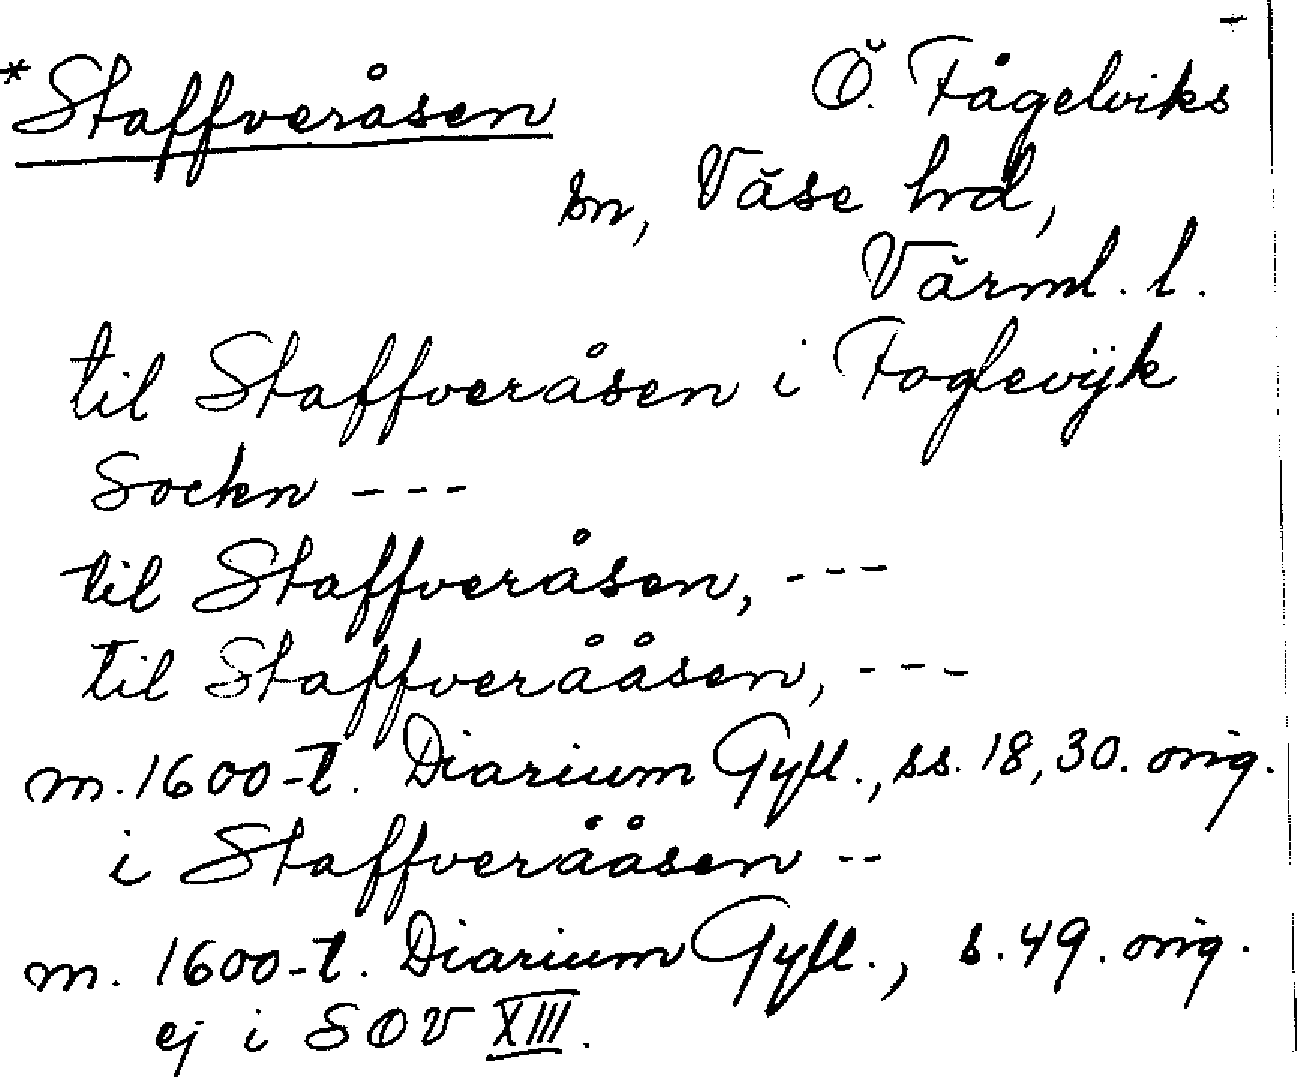 *Staffveråsen
Ö. Fågelviks
sn, Väse hrd,
Värml. l.
til Staffveråsen i Foglevijk
Sockn ---
til Staffveråsen, ---
til Staffverååsen, ---
m. 1600-t. Diarium Gyll., ss. 18, 30. orig.
i Staffverååsen --
m. 1600-t. Diarium Gyll., s. 49. orig.
ej i SOV XIII.